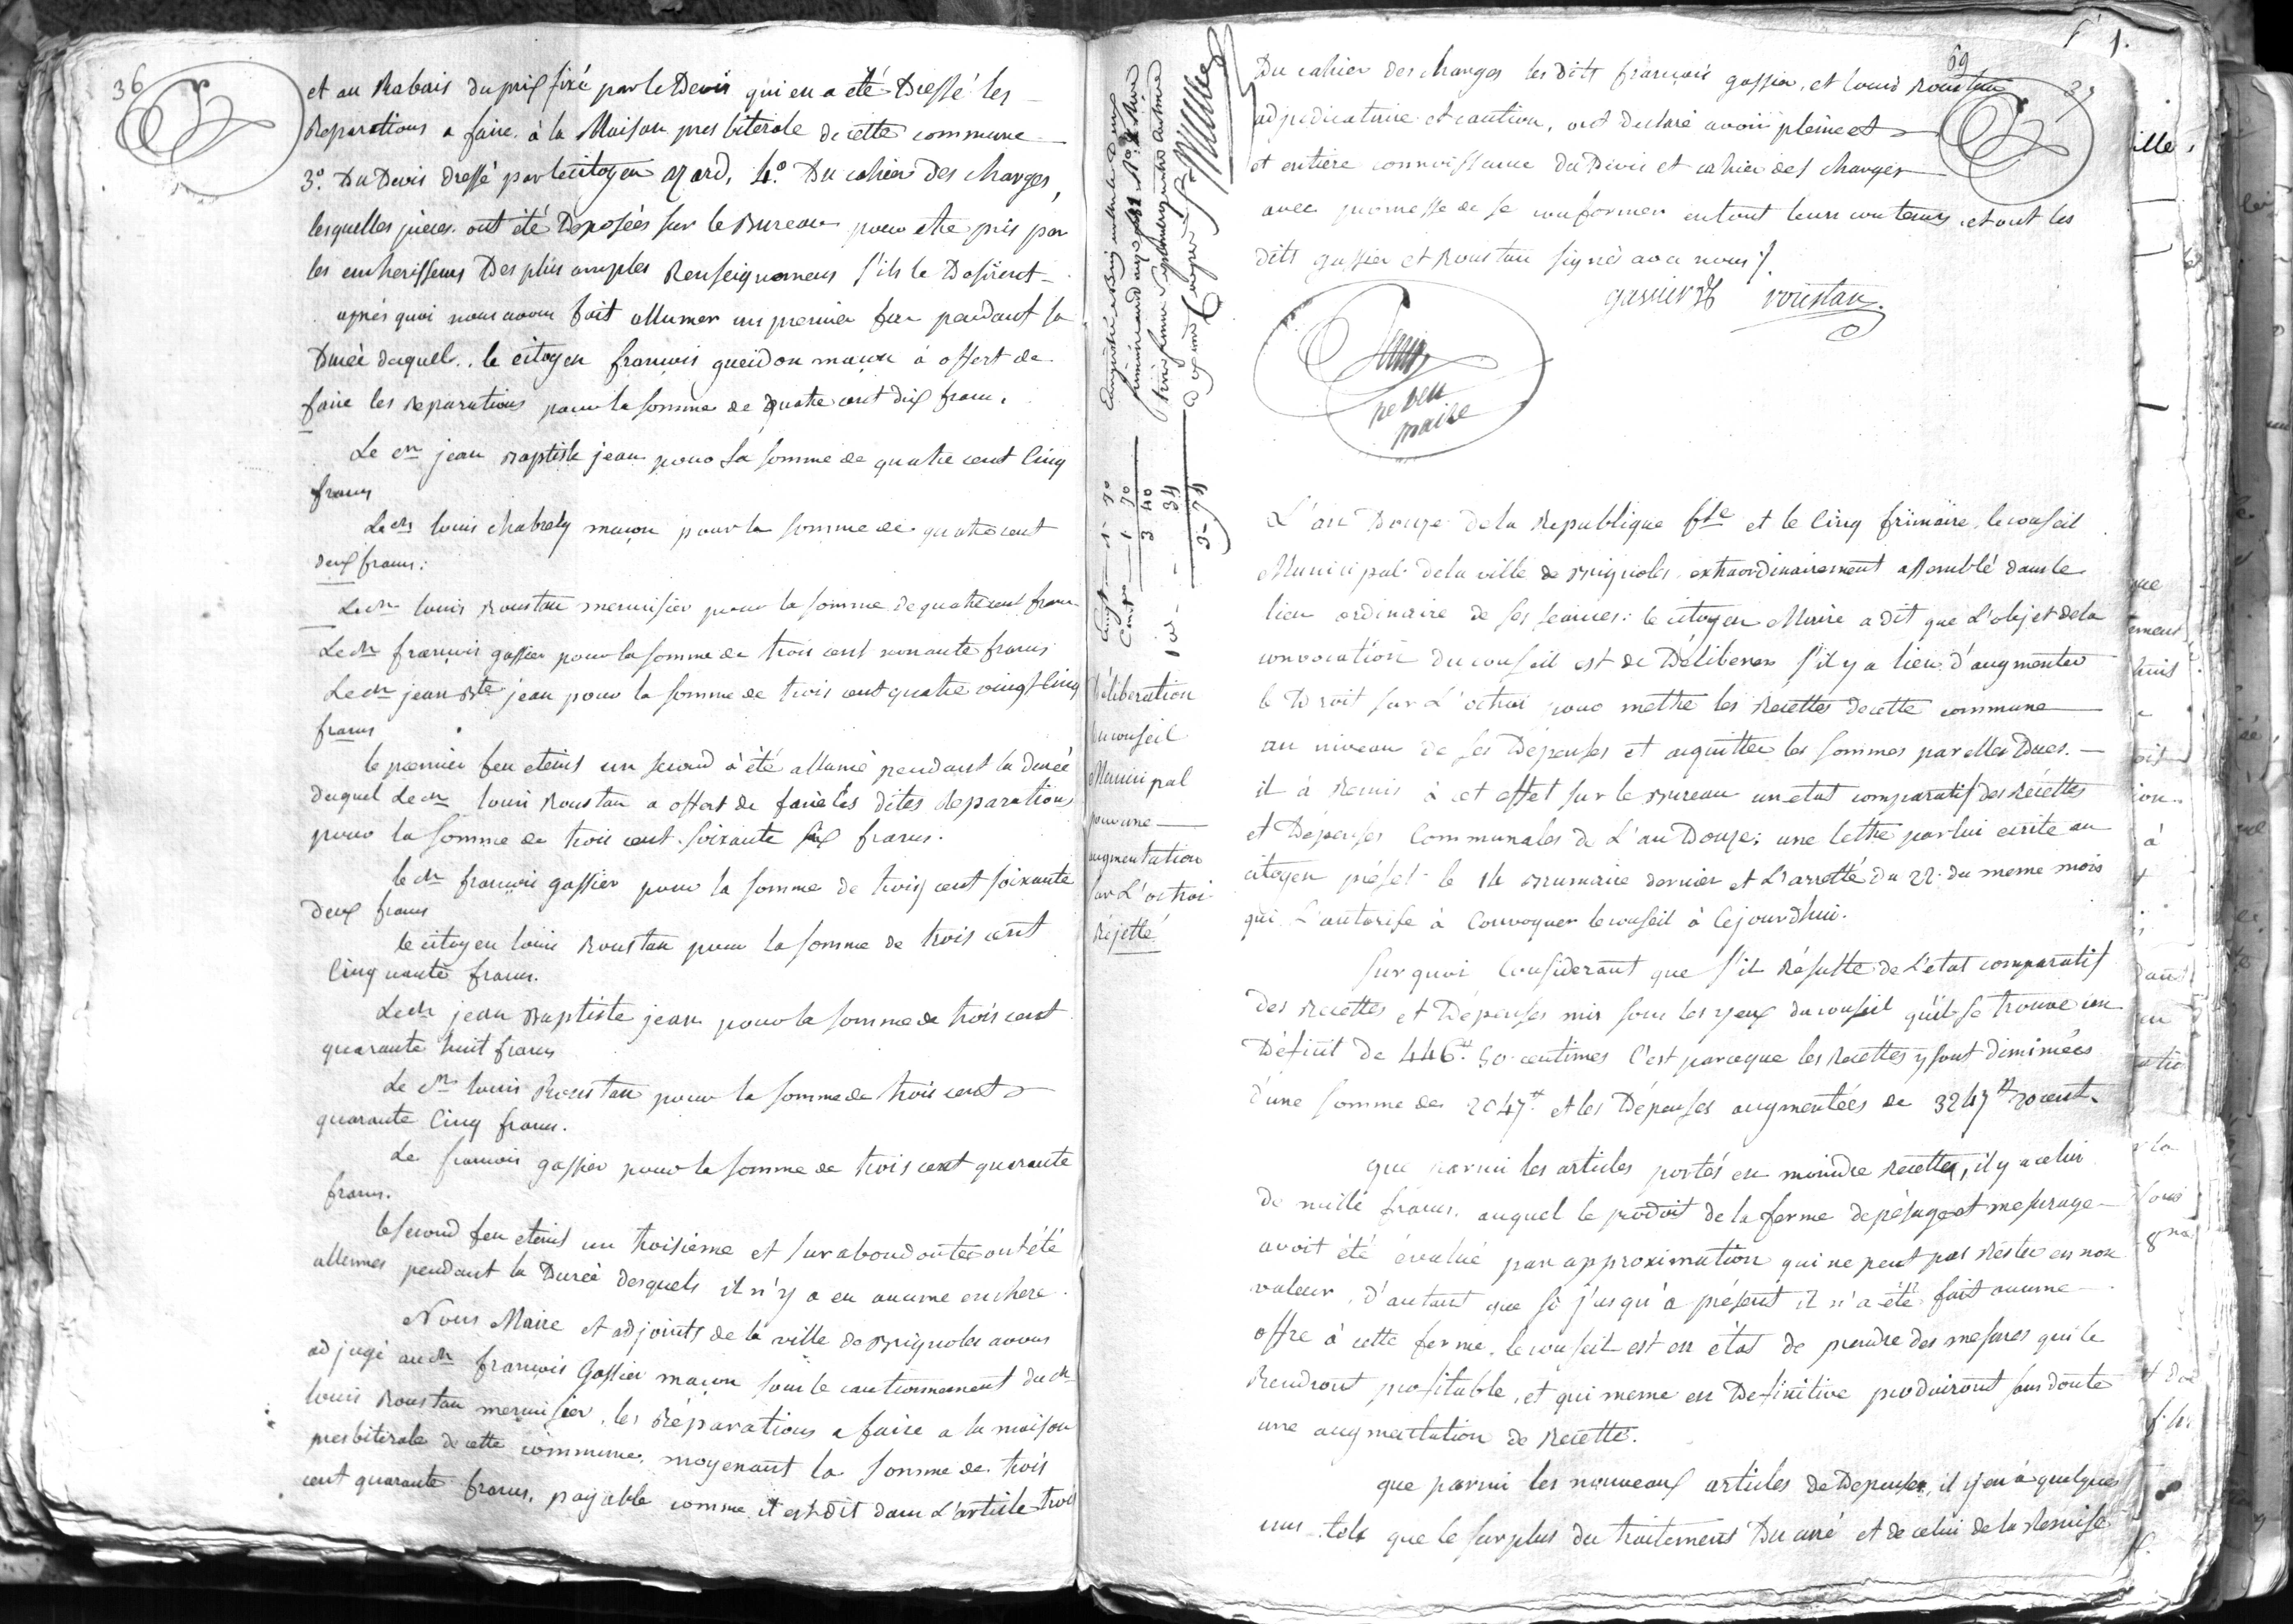 36
et au Rabais du prix fixé par le Devis qui en a été Dressé les
Reparations a faire à la Maison presbiterale de cette commune
3º. Du Devis dressé par le citoyen azard, 4º. Du cahier des charges,
lesquelles pièces ont été Deposées sur le Bureau pour etre pris par
les encherisseurs Des plus amples Renseignemens s'ils le Desirent
après quoi nous avons fait allumer un premier feu pendant la
Durée duquel .. le citoyen françois gueidon maçon à offert de
faire les reparations pour la somme de quatre cent dix francs.
Le cn jean Baptiste jean pour La somme de quatre cent Cinq
francs
Le cn louis chabrely maçon pour la somme de quatre cent
deux francs.
Le cn louis Roustan menuisier pour la somme de quatre cent francs
Le cn françois gassier pour la somme de trois cent nonante francs
Le cn jean Bte jean pour la somme de trois cent quatre vingt Cinq
francs
le premier feu eteint un second à été allumé pendant la durée
duquel Le cn louis Roustan a offert de faire les dites Reparations
pour la somme de trois cent soixante six francs.
le cn françois gassier pour la somme de trois cent soixante
Deux francs
le citoyen louis Roustan pour la somme de trois cent
Cinquante francs.
Le cn jean Baptiste jean pour la somme de trois cent
quarante huit francs
Le cn louis Roustan pour la somme de trois cent
quarante Cinq francs.
Le françois gassier pour la somme de trois cent quarante
francs.
le second feu eteint un troisième et surabondante ont été
allumés pendant la Durée desquels il n'y a eu aucune enchere.
Nous Maire et adjoints de la ville de Brignoles avons
adjugé au cn françois Gassier maçon sous le cautionnement du cn
louis Roustan menuisier, les Réparations a faire a la maison
presbiterale de cette commune, moyenant la somme de trois
cent quarante francs, payable comme il est dit dans L'article trois
69
Du cahier des charges les Dits françois gassier, et louis Roustan
adjudicataire et caution, ont declaré avoir pleine et
et entière connoissance du Devis et cahier des charges
avec promesse de se conformer en tout leurs contenus, et ont les
dits gassier et Roustan signé avec nous ./.
gassier roustan
maire
1 70
1 70
3 40
34
3-74
Déliberation
du conseil
Municipal
pour une
augmentation
sur L'octroi
Réjetté
L'an Douze de la Republique fse et le Cinq frimaire, le conseil
Municipal de la ville de Brignoles extraordinairement assemblé dans le
lieu ordinaire de ses seances: le citoyen Maire a dit que L'objet de la
convocation du conseil est de Déliberer s'il y a lieu d'augmenter
le Droit sur L'octroi pour mettre les Recettes de cette commune
au niveau de ses Dépenses et acquitter les sommes par elles Dues.
il à Remis à cet effet sur le Bureau un etat comparatif des Récettes
et Dépenses Communales de L'an Douze; une lettre par lui ecrite au
citoyen préfet le 14 Brumaire dernier et L'arretté du 22 du meme mois
qui L'autorise à Convoquer le conseil à Cejourdhui.
Sur quoi Considerant que s'il Résulte de L'etat comparatif
Des Recettes et Dépenses mis sous les yeux du conseil qu'il se trouve un
Déficit de 446 50 centimes C'est parceque les Recettes y sont diminuées
d'une somme de 2047 et les Dépenses augmentées de 3247 50 cent.
que parmi les articles portés en moindre Recette, il y a celui
de mille francs, auquel le produit de la ferme de pésage et mesurage
avoit été évalué par approximation qui ne peut pas Rester en non
valeur, d'autant que si jusqu'à présent il n'a été fait aucune
offre à cette ferme, le conseil est en état de prendre des mesures qui la
Rendront profitable, et qui meme en Definitive produiront sans doute
une augmentation de Recette.
que parmi les nouveaux articles de Depenses, il y en à quelques
uns tels que le surplus du traitement Du curé et de celui de la Remise